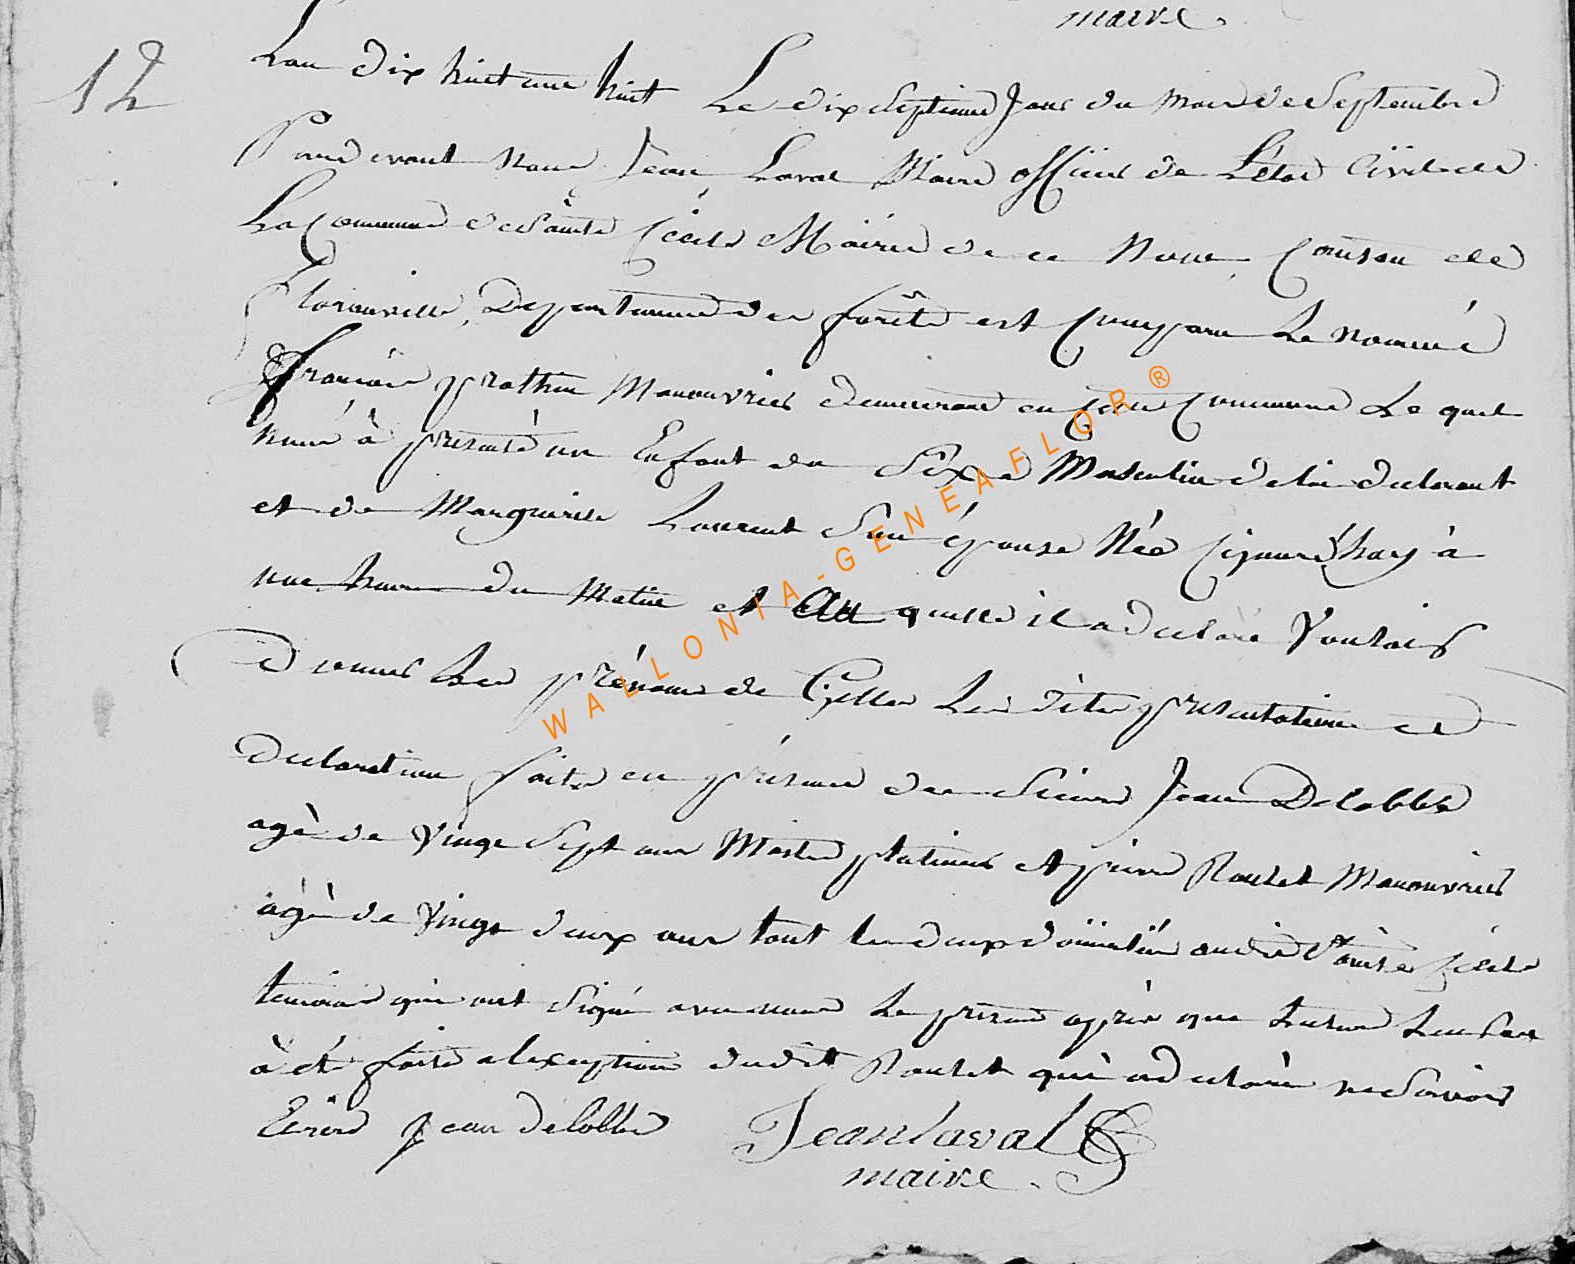 maire.
12
Lan dix huit cent huit Le dix Septieme Jour du mois de Septembre
Pardevant nous Jean Laval Maire officier de L'état Civil de
La Commune de Sainte Cécile Mairie de ce Nom, Canton de
Florenville, Departement des forêts est Comparu Le nommé
François prothin Manouvrier demeurant en cette Commune Le quel
nous à presenté un Enfant du Sexe Masculin de lui declarant
et de Marguerite Laurent Son épouse Née Cejourdhuy à
une heure du Matin et Au quelle il a declaré Vouloir
Donner Les prénoms de Gilles Les dites presentation et
Declaration faite en présence des Sieurs Jean Delobbe
agè de Vingt Sept ans Maitre platineur et pierre Roulet Manouvrier
agè de Vingt deux ans tout les deux domicilies audit Sainte Cécile
temoins qui ont Signé avec nous Le present après que Lecture Leur
à été faite a lexception dudit Roulet qui à declarè ne Savoir
Ecrire Jean Delobbe Jean laval
maire.
WALLONIA-GENEAFLOR®